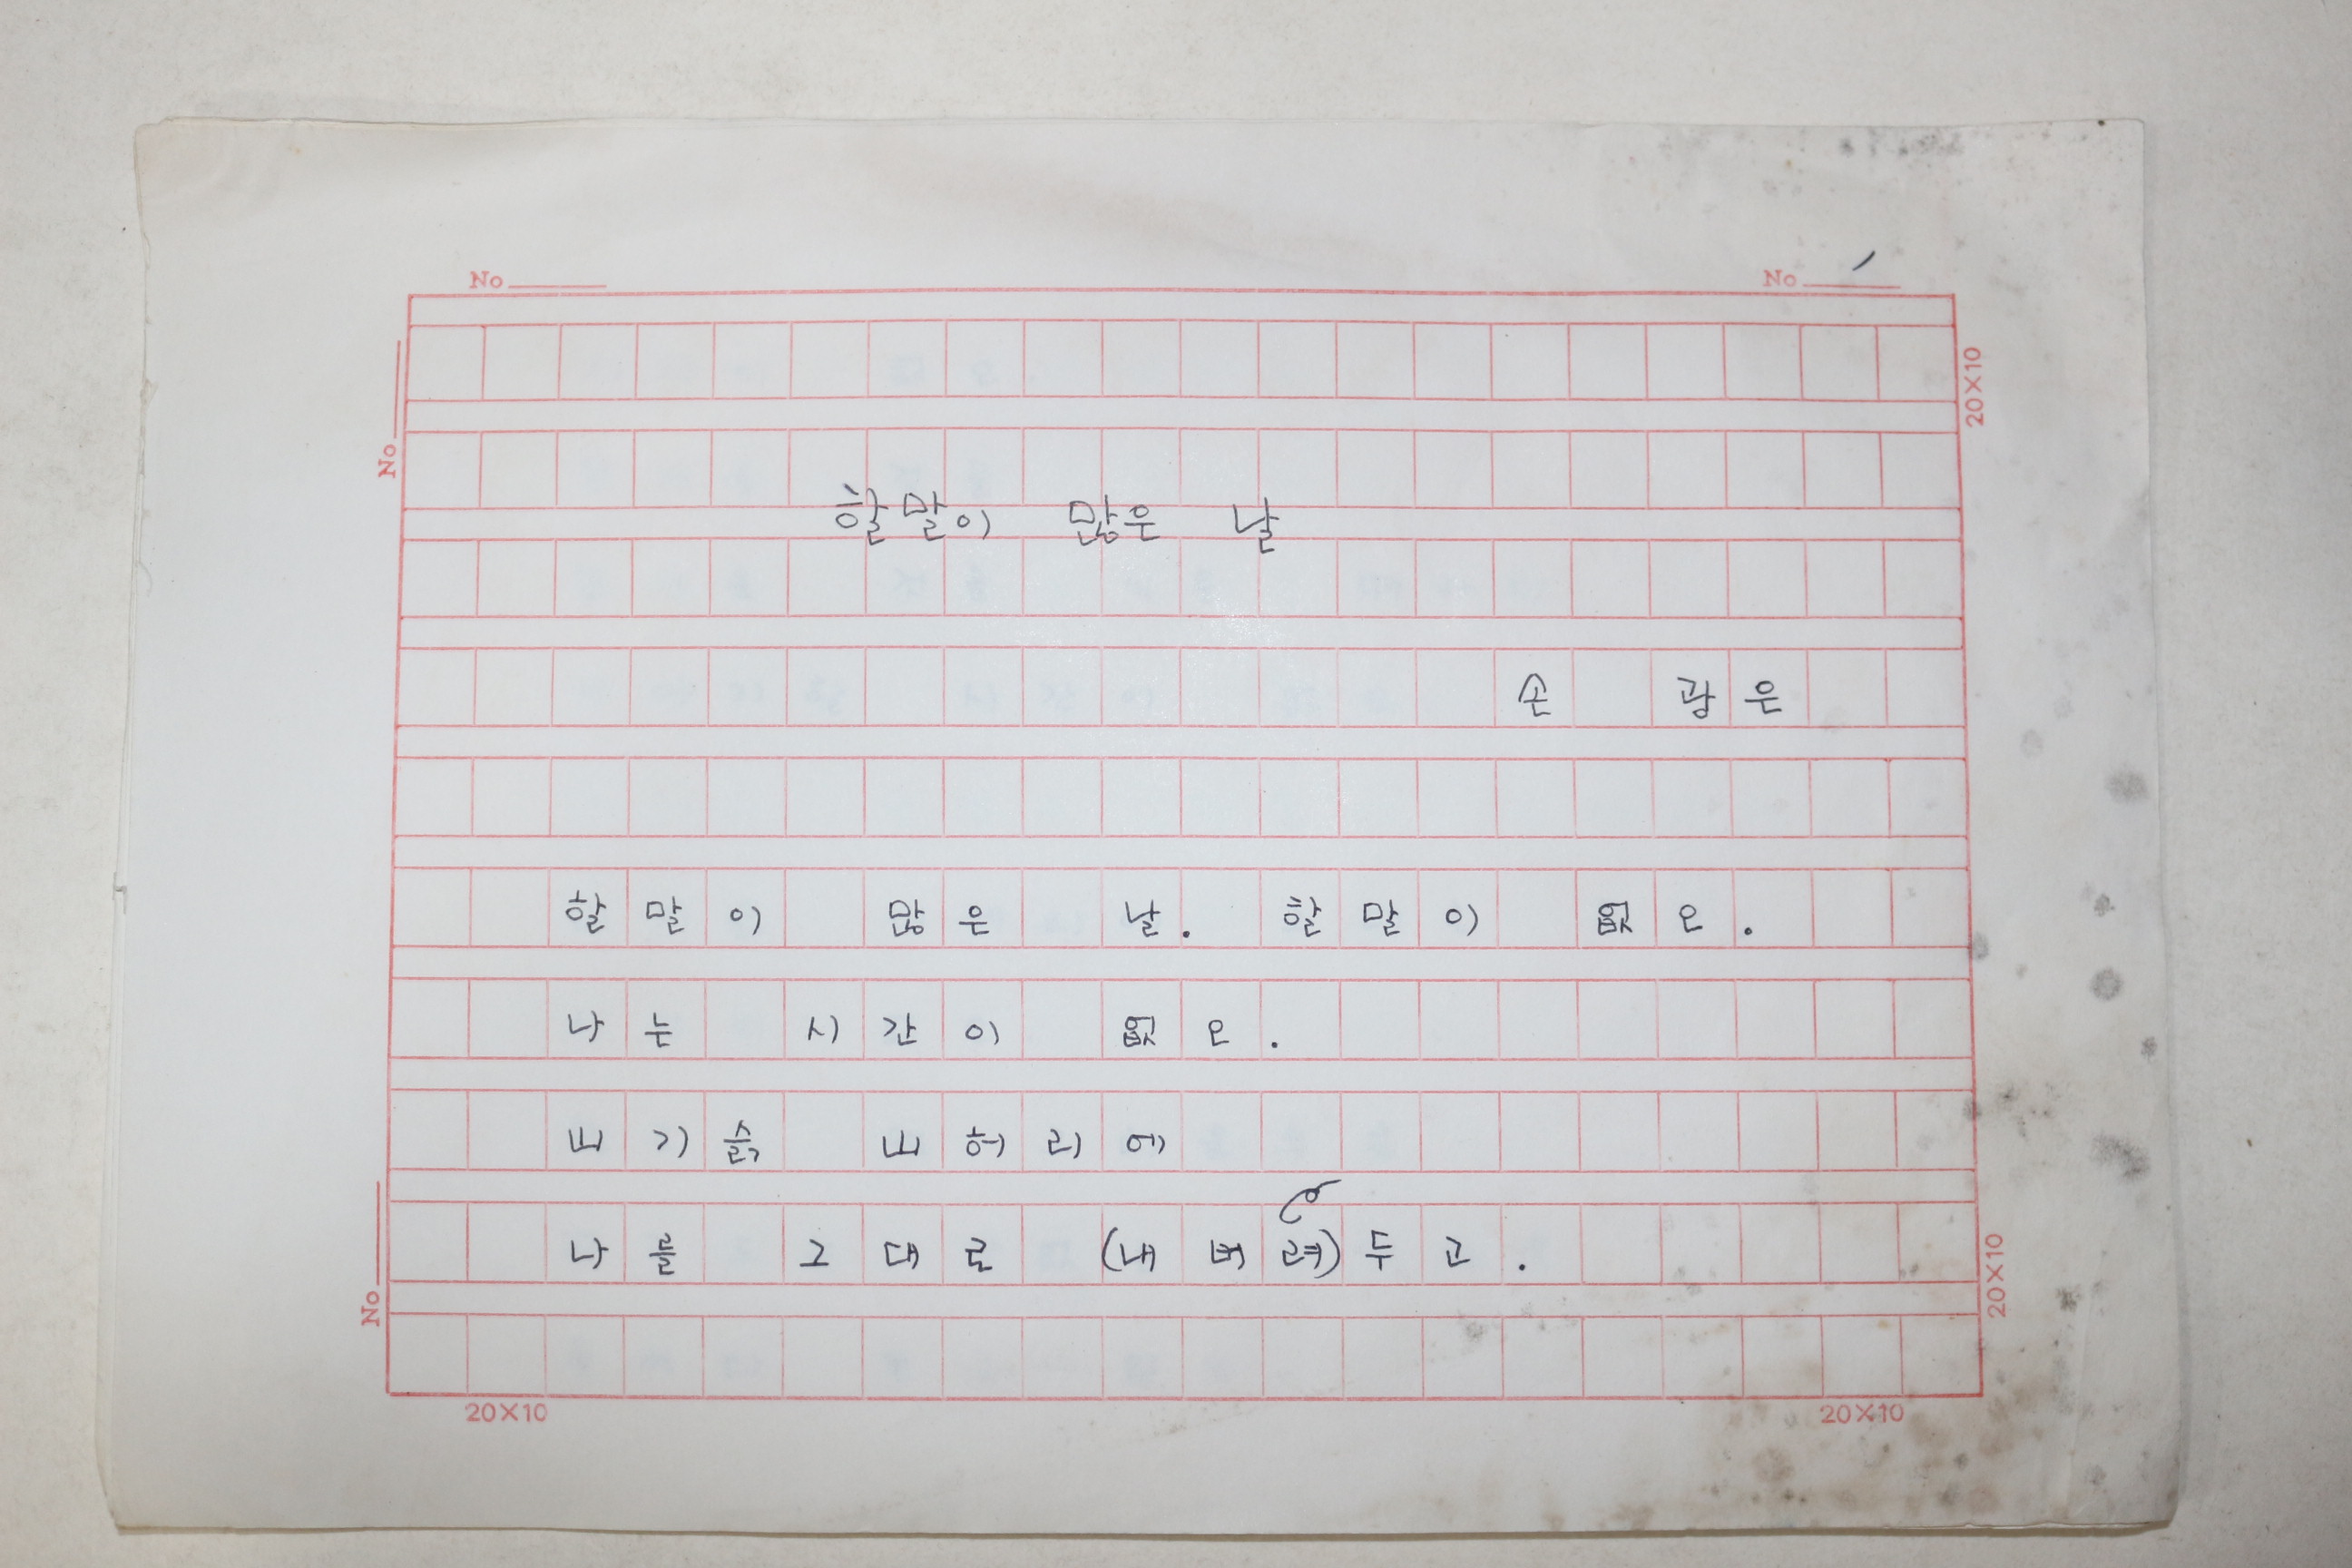 No No 1
20×10
No
할말이 많은 날
손 광은
할말이 많은 날. 할말이 없오.
나는 시간이 없오.
山기슭 山허리에
나를 그대로 (내버려)두고.
No
20×10
20×10 20×10